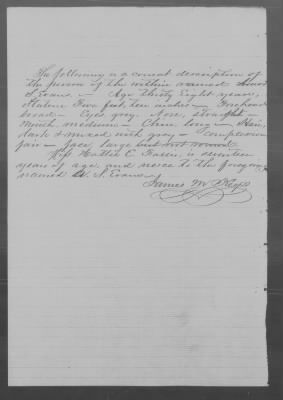 The following is a correct description of
the person of the within named
S. Evans. — Age thirty Eight years,
Stature Five feet, ten inches — Forehead
broad — Eyes grey. Nose, straight —
Mouth medium — Chin long — Hair,
dark & mixed with grey — Complexion
fair — face, large but not round
Miss Hattie E. is seventeen
years of age and niece to the foregoing
named W. S. Evans
James M.